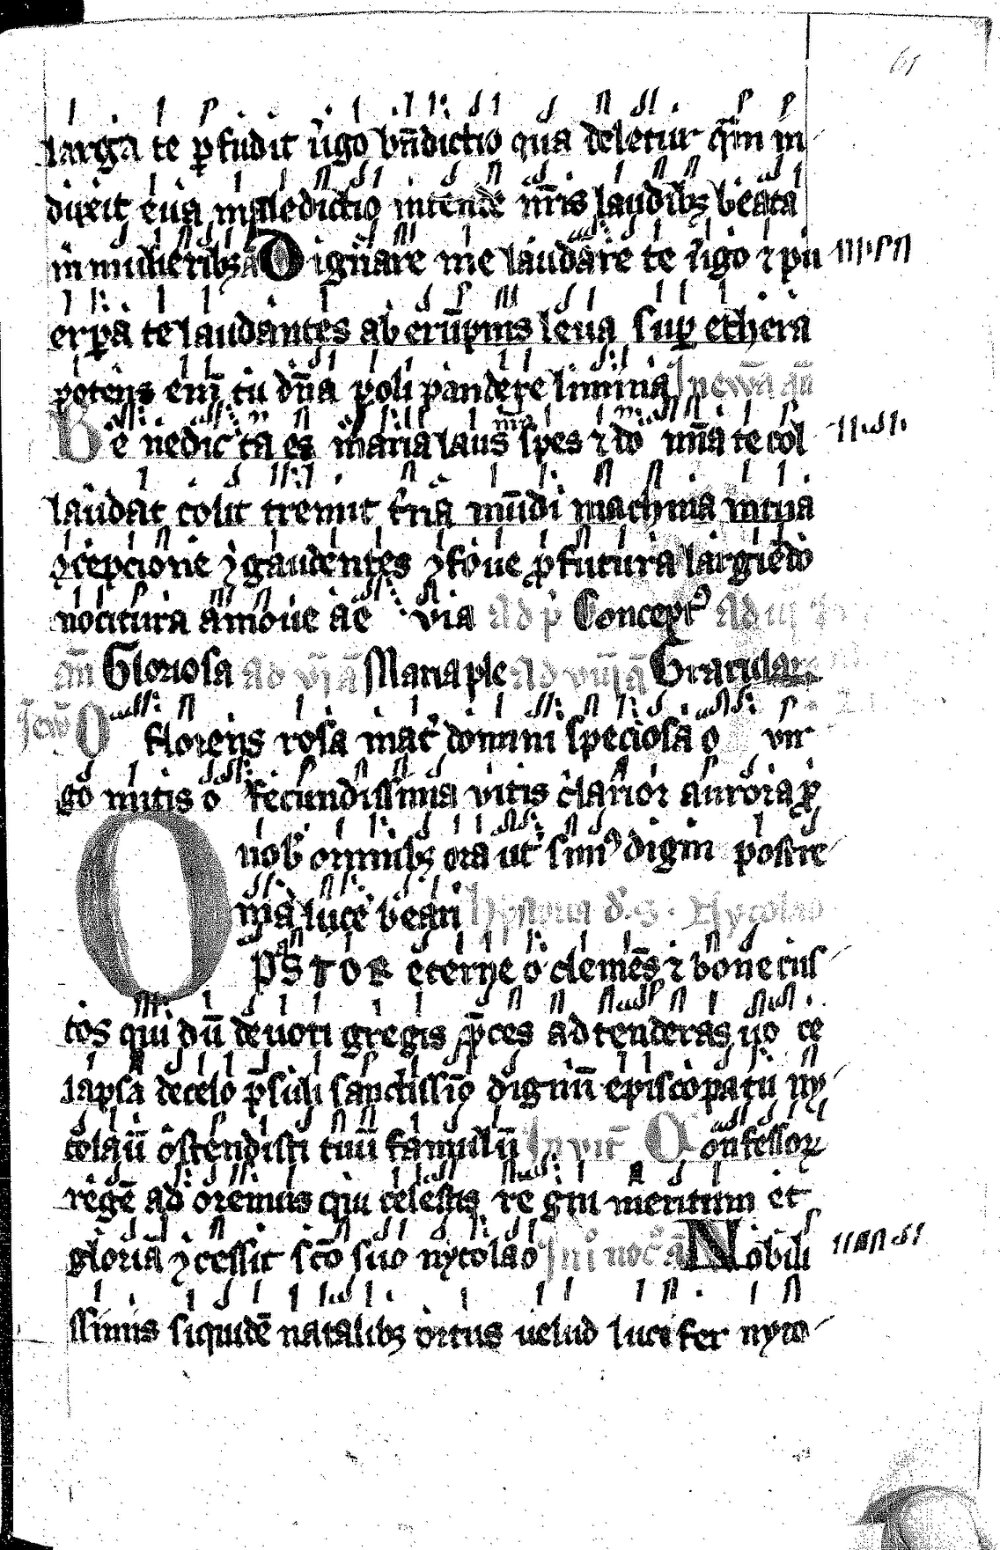 larga te ꝑfudit v̄go bn̄dictio qua deletur qm̄ in
duxit eua maledictio intende nr̄is laudibꝫ beata
in mulieribꝫ a Dignare me laudare te v̄go ⁊ pu
erꝑa te laudantes ab erūpnis leua suꝑ ethera
potens em̄ tu dn̄a poli pandere limina In ewā an̄
Be nedicta es maria laus spes ⁊ do mn̄a te col
laudat colit tremit t̄na mūdi machina in tua
ꝯcepcione ꝯgaudentes ꝯfoue ꝓfutura largiēdo
nocitura amoue ae via ad p̄ Concepꝰ ad iii
an̄ Gloriosa ad vi a Maria ple ad viii a Gratular
In ew̄ O florens rosa mat̄ domini speciosa o vir
go mitis o fecundissima vitis clarior aurora ꝓ
nob̄ omnibꝫ ora ut simꝰ digni postre
ma luce beari hystoria d.S. Nycolao
PASTOR eterne o clemēs ⁊ bone cus
tos qui dū deuoti gregis p̄ces ad tenderas uo ce
lapsa decelo p̄suli sanctissīo dignū episcopatu ny
colaū ostendisti tuū famulū Inuit̄ Confessoꝝ
regē ad oremus qui celestis re gni meritum et
gloriā ꝯcessit sc̄o suo nycolao In i noc̄ a Nobili
ssimis siquidē natalibꝫ ortus uelud lucifer nyco